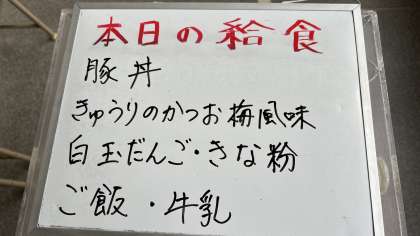 本日の給食
豚丼
きゅうりのかつお梅風味
白玉だんご・きな粉
ご飯・牛乳